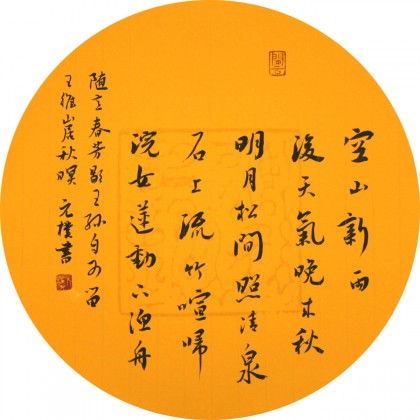 空山新雨
後天氣晚来秋
明月松間照清泉
石上流竹喧歸
浣女蓮動下漁舟
随意春芳歇王孫自可留
王維山居秋暝 元樸書